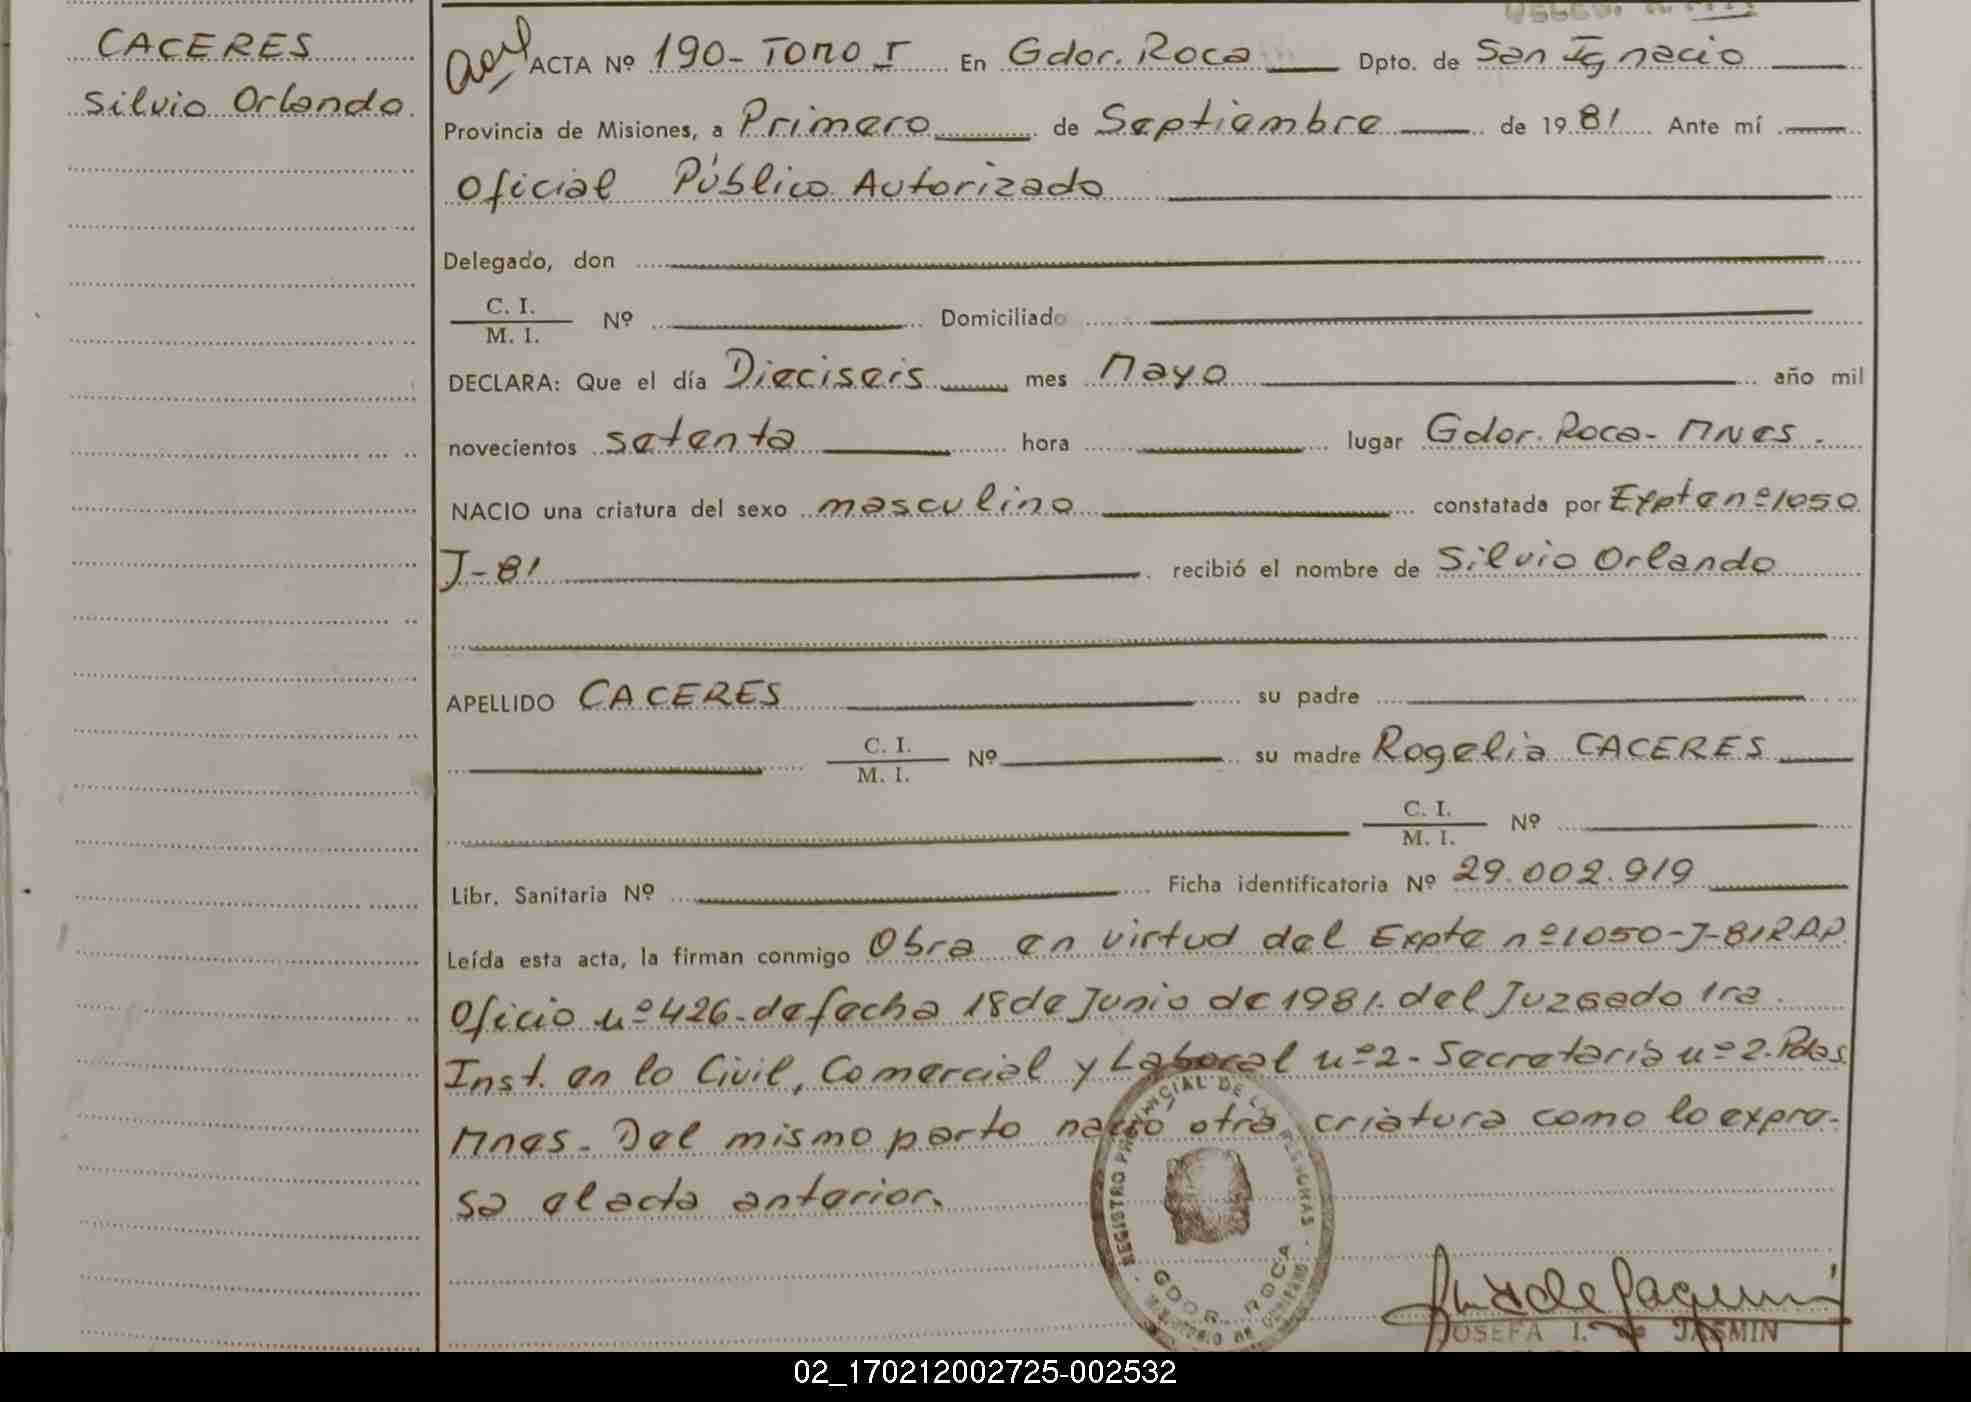 CACERES
Silvio Orlando
ACTA Nº 190- Tomo I En Gdor. Roca Dpto. de San Ignacio
Provincia de Misiones, a Primero de Septiembre de 1981 Ante mí
Oficial Público Autorizado
Delegado, don
C. I.
M. I. Nº Domiciliado
DECLARA: Que el día Dieciseis mes Mayo año mil
novecientos setenta hora lugar Gdor. Roca- Mnes.
NACIO una criatura del sexo masculino constatada por Expte nº1050
J-81 recibió el nombre de Silvio Orlando
APELLIDO CACERES su padre
C. I.
M. I. Nº su madre Rogelia CACERES
C. I.
M. I. Nº
Libr. Sanitaria Nº Ficha identificatoria Nº 29.002.919
Leída esta acta, la firman conmigo Obra en virtud del Expte nº1050-J-81
Oficio nº426- de fecha 18 de Junio de 1981. del Juzgado 1ra.
Inst. en lo Civil, Comercial y Laboral nº2- Secretaria nº2. Pdas
Mnes- Del mismo parto nació otra criatura como lo expre-
sa el acta anterior.
REGISTRO PROVINCIAL DE LAS PERSONAS
GDOR. ROCA
JOSEFA I. de JASMIN
02_170212002725-002532